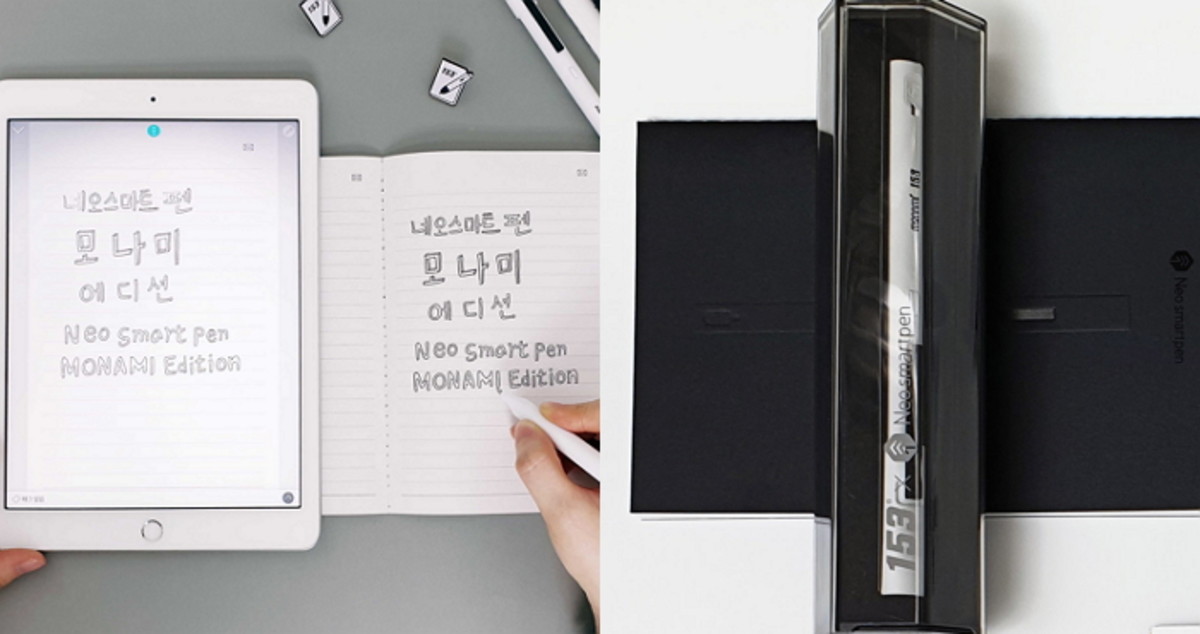 네오스마트 펜
모 나 미
에 디 션
Neo Smart Pen
MONAMI Edition
네오스마트 펜
모 나 미
에 디 션
Neo Smart Pen
MONAMI Edition
153
153
monami 153
153 x Neo smartpen
Neo smartpen